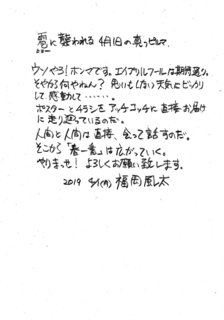 雹に襲われる4月1日の真っピルマ
ウソやろ!ホンマです。エイプリルフールは期待通り。
そやから何やねん?色いもしない天気にビックリ
して感動して・・・・・・。
ポスターとチラシをアッチコッチに直接お届け
に走り廻っているのだ。
人間と人間は直接、会って話すのだ。
そこから「春一番」は広がっていく。
やりまっせ!よろしくお願い致します。
2019 4/1(月) 福岡風太